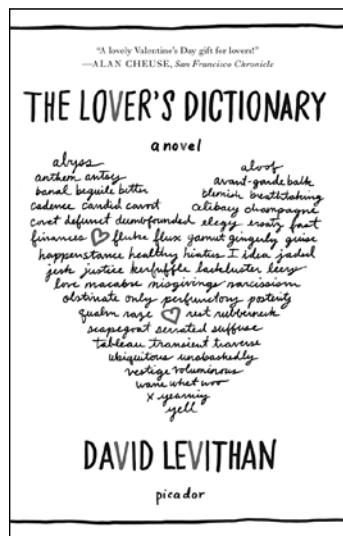 "A lovely Valentine's Day gift for lovers!"
—ALAN CHEUSE, San Francisco Chronicle
THE LOVER'S DICTIONARY
a novel
abyss aloof
anthem antsy avant-garde balk
banal beguile bitten blemish breathtaking
cadence candid cavort celibacy champagne
covet defunct dumbfounded elegy ersatz fast
finances fluke flux gamut gingerly guise
happenstance healthy hiatus I idea jaded
jerk justice kerfuffle lackluster leery
love macabre misgivings narcissism
obstinate only perfunctory posterity
qualm raze rest rubberneck
scapegoat serrated suffuse
tableau transient traverse
ubiquitous unabashedly
vestige voluminous
wane whet woo
x yearning
yell
DAVID LEVITHAN
picador